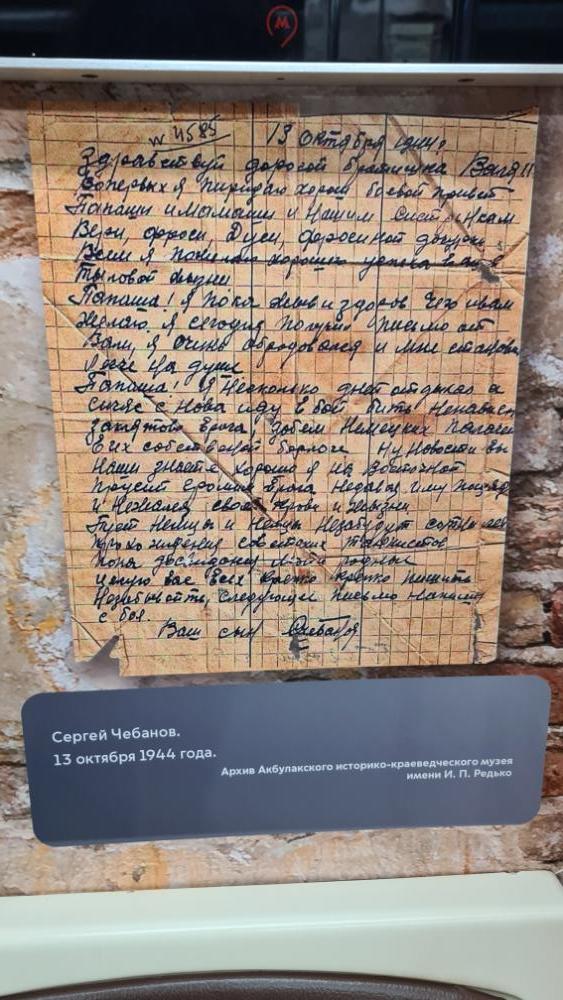 N 4585
13 октября 1944
Здравствуй дорогой братишка Валя!!
Вопервых я пиридаю хорош боевой привет
Папаши и мымыши и Нашим
Вери, фроси, Дуси,
Всем я хороших успеха в
тыловой жизни
Папаша! Я пока жив и здоров чего и вам
желаю. Я сегодня получил письмо от
Вали, я очинь обродовался и мне
легче на души
Папаша! Я несколько дней отдыхал а
сичяс с нова иду в бой бить Ненавис
заклятого врага, добем Немецких Палачей
в их собственой берлоге Ну Новости вы
Наши знаете хорошо я на Восточной
Прусии громлю врага Недавая иму пощяд
и Нежалея своей крови и жизни
Пуст Немцы и Незабудут
советских танкистов
Пока досвидания мои родные
целую вас всех крепко крепко пишите
Незабывайте, следующее письмо напишу
с боя.
Ваш сын Чебанов
Сергей Чебанов.
13 октября 1944 года.
Архив Акбулакского историко-краеведческого музея
имени И. П. Редько